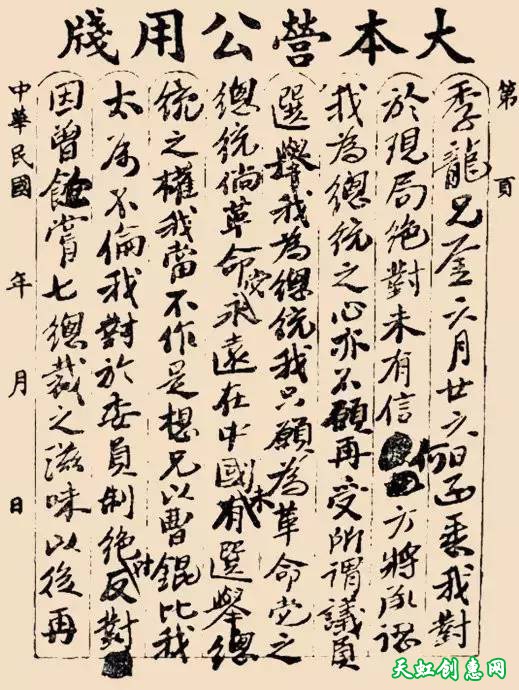 大本營公用牋
第 頁
季龍兄鑒六月廿六日函悉我對
於現局絕對未有信何方將承認
我為總統之心亦不願再受所謂議員
選舉我為總統我只願為革命党之
總統倘革命党永遠在中國未有選舉總
統之權我當不作是想兄以曹錕比我
太為不倫我對於委員制絕對反對
因曾飽嘗七總裁之滋味以後再
中華民國 年 月 日
天虹创意网